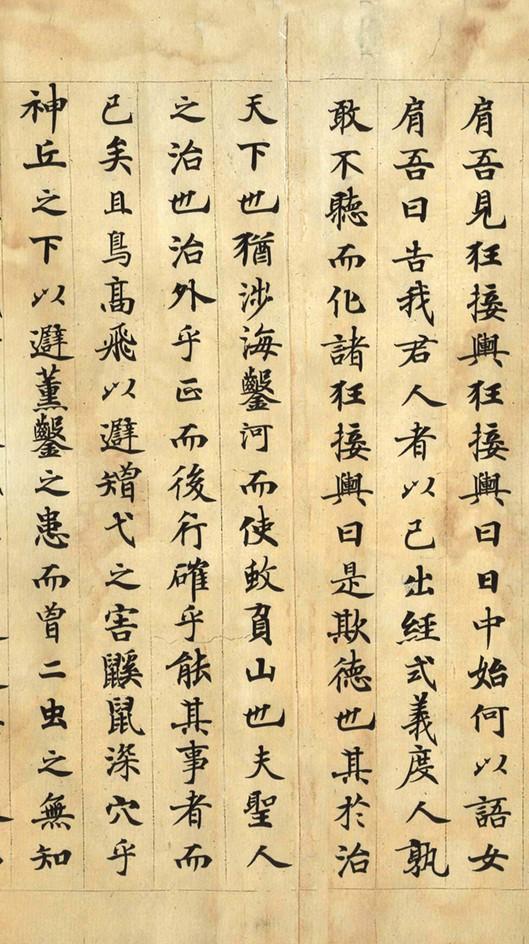 肩吾見狂接輿狂接輿曰日中始何以語女
肩吾曰告我君人者以己出經式義度人孰
敢不聽而化諸狂接輿曰是欺德也其於治
天下也猶涉海鑿河而使蚊負山也夫聖人
之治也治外乎正而後行確乎能其事者而
已矣且鳥高飛以避矰弋之害鼷鼠深穴乎
神丘之下以避薰鑿之患而曾二虫之無知